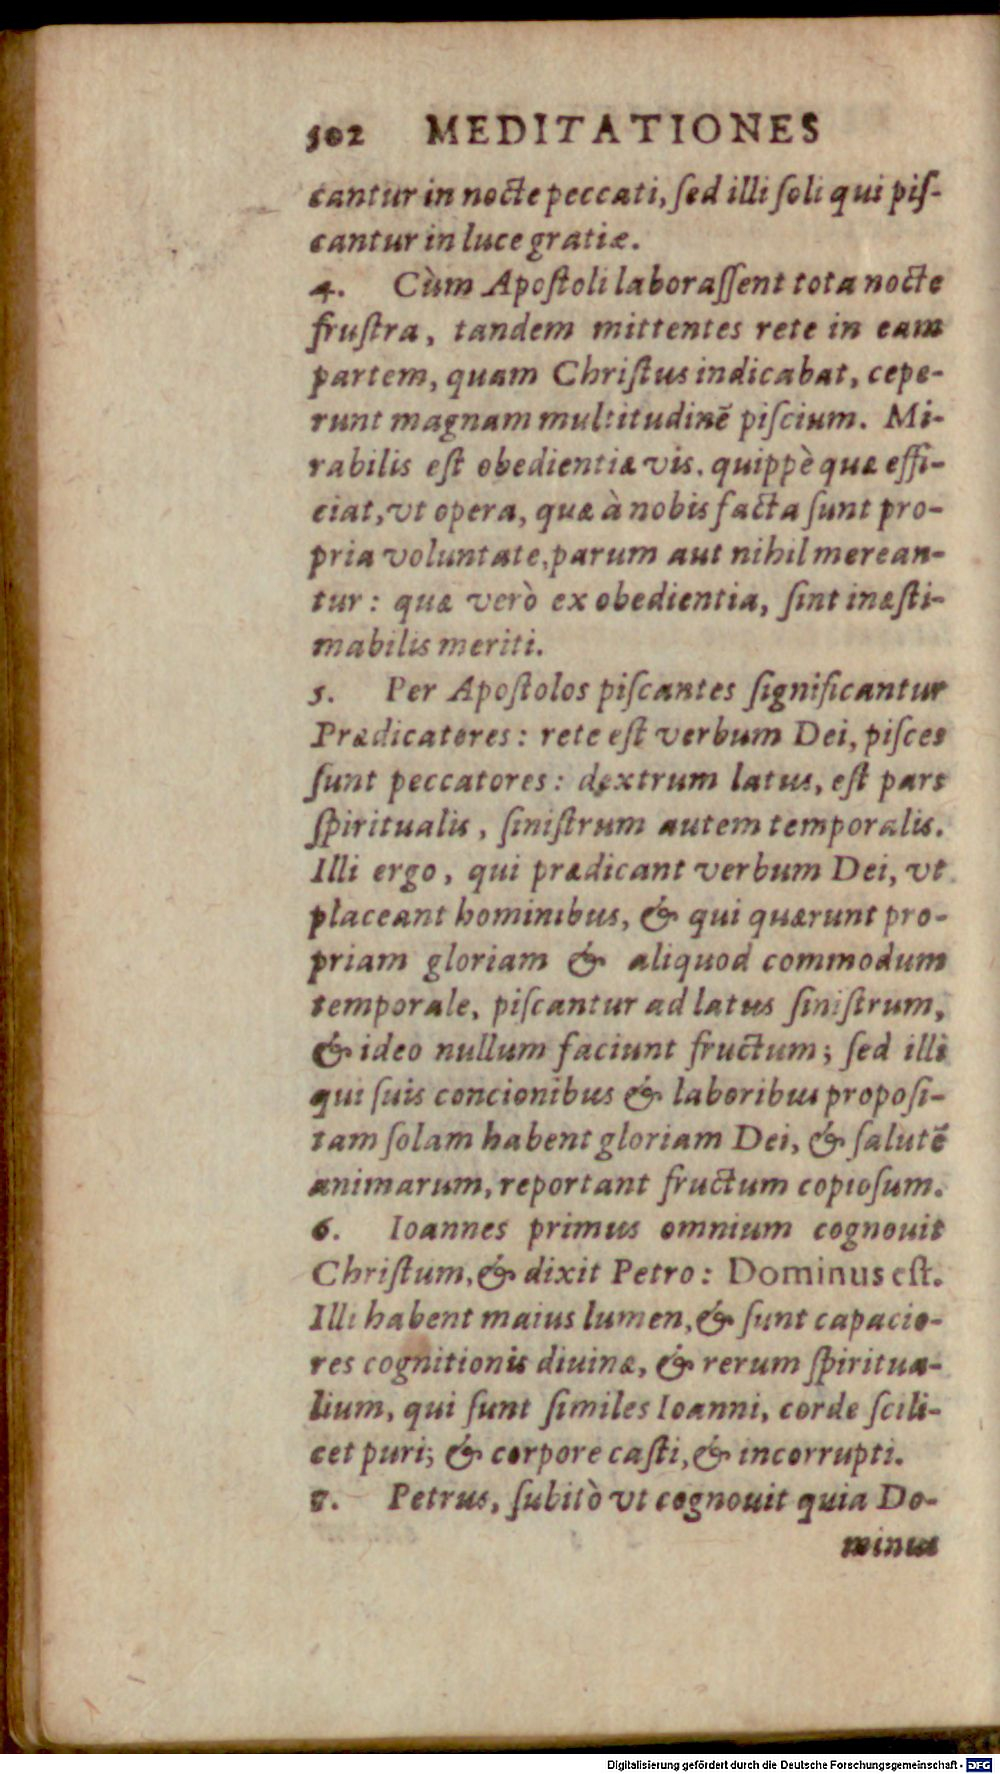 302 MEDITATIONES
cantur in nocte peccati, ſed illi ſoli qui piſ-
cantur in luce gratiæ.
4. Cùm Apoſtoli laboraſſent tota nocte
fruſtra, tandem mittentes rete in eam
partem, quam Chriſtus indicabat, cepe-
runt magnam multitudinē piſcium. Mi-
rabilis eſt obedientiæ vis. quippè quæ effi-
ciat, vt opera, quæ à nobis facta ſunt pro-
pria voluntate, parum aut nihil merean-
tur: quæ verò ex obedientia, ſint inæſti-
mabilis meriti.
5. Per Apoſtolos piſcantes ſignificantur
Prædicatores: rete eſt verbum Dei, piſces
ſunt peccatores: dextrum latus, eſt pars
ſpiritualis, ſiniſtrum autem temporalis.
Illi ergo, qui prædicant verbum Dei, vt
placeant hominibus, & qui quærunt pro-
priam gloriam & aliquod commodum
temporale, piſcantur ad latus ſiniſtrum,
& ideo nullum faciunt fructum; ſed illi
qui ſuis concionibus & laboribus propoſi-
tam ſolam habent gloriam Dei, & ſalutē
animarum, reportant fructum copioſum.
6. Ioannes primus omnium cognouit
Chriſtum, & dixit Petro: Dominus eſt.
Illi habent maius lumen, & ſunt capacio-
res cognitionis diuinæ, & rerum ſpiritua-
lium, qui ſunt ſimiles Ioanni, corde ſcili-
cet puri; & corpore caſti, & incorrupti.
8. Petrus, ſubitò vt cognouit quia Do-
minus
Digitalisierung gefördert durch die Deutsche Forschungsgemeinschaft - DFG